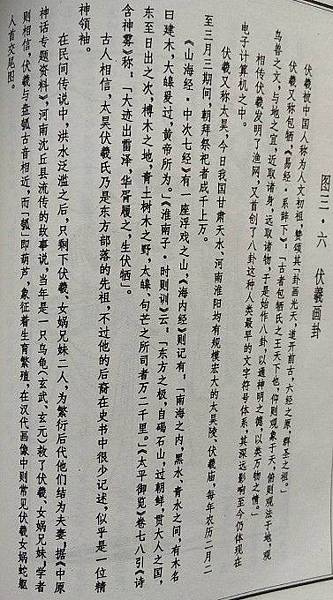 图三·六 伏羲画卦
伏羲被中国人称为人文初祖，赞颂其「卦画光天，道开前古，六经之原，群圣之祖。」
伏羲又称包牺，《易经·系辞下》，「古者包牺氏之王天下也，仰则观象于天，俯则观法于地，观
鸟兽之文，与地之宜，近取诸身，远取诸物，于是始作八卦，以通神明之德，以类万物之情。」
相传伏羲发明了渔网，又首创了八卦这种人类最早的文字符号体系，其深远影响至今仍体现在
电子计算机之中。
伏羲又称太昊，今日我国甘肃天水、河南淮阳均有规模宏大的太昊陵、伏羲庙，每年农历二月二
至三月三期间，朝拜祭祀者成千上万。
《山海经·中次七经》有一座浮戏之山，《海内经》则记有，「南海之内，黑水、青水之间，有木名
曰建木，大皞爰过，黄帝所为。」《淮南子·时则训》云，「东方之极，自碣石山，过朝鲜，贯大人之国，
东至日出之次，榑木之地，青土树木之野，太皞、句芒之所司者万二千里。」《太平御览》卷七八引《诗
含神雾》称，「大迹出雷泽，华胥履之，生伏牺」。
古人相信，太昊伏羲氏乃是东方部落的先祖，不过他的后裔在史书中很少记述，似乎是一位精
神领袖。
在民间传说中，洪水泛滥之后，只剩下伏羲、女娲兄妹二人，为繁衍后代他们结为夫妻，据《中原
神话专题资料》，河南沈丘县流传的故事说，当年是一只乌龟（玄武、玄元）救了伏羲、女娲兄妹，学者
则相信，伏羲与盘瓠古音相近，而「瓠」即葫芦，象征着生育繁殖，在汉代画像中则常见伏羲女娲蛇躯
人首交尾图。